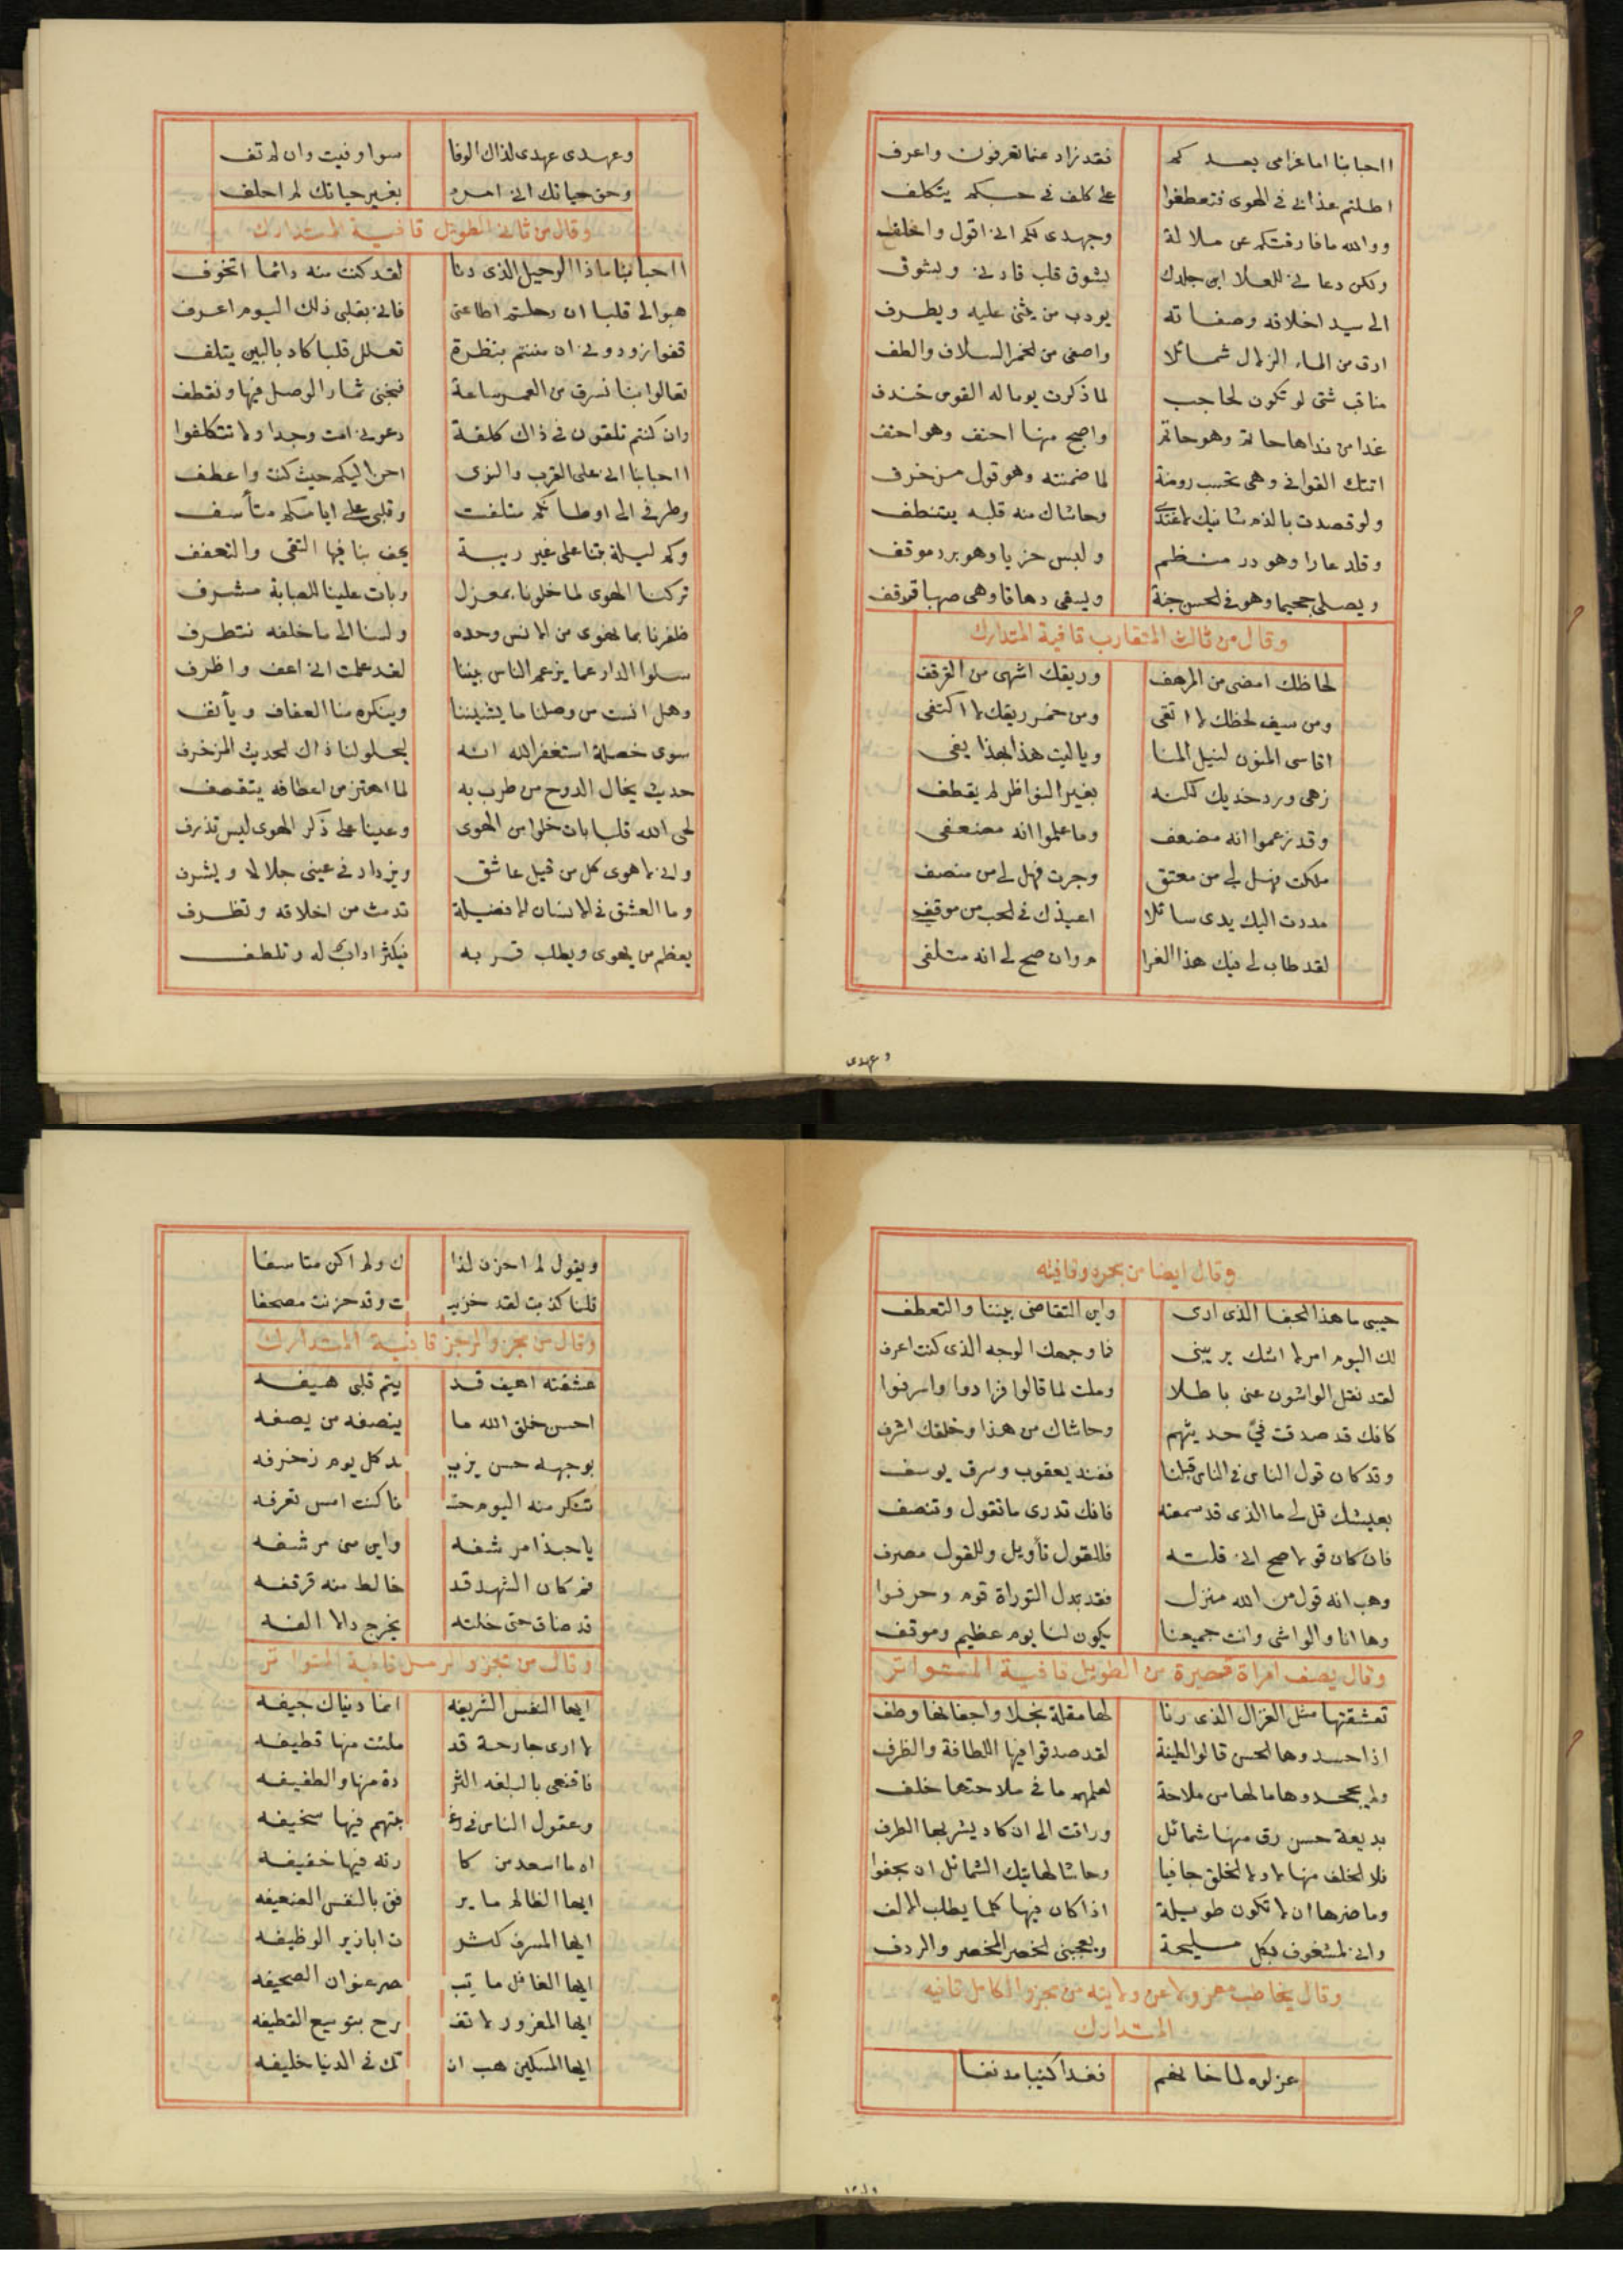 ااحبابنا اما غرامى بعدكم فقد زاد عما تعرفون واعرف
اطلتم عذابى فى الهوى فتعطفوا على كلف فى حبكم يتكلف
ووالله ما فارقتكم عن ملالة وجهدى لكم انى اقول واحلف
ولكن دعانى للعلا ابن جلدك بشوق قلب قادنى ويشوق
الى سيد اخلاقه وصفاته يودب من يثنى عليه ويطرف
ارق من الماء الزلال شمائلا واصفى من الخمر السلاف والطف
مناقب شتى لو تكون لحاجب لما ذكرت يوما له القوس خندف
غدا من نداها حاتم وهو حاتم واصبح منها احنف وهو احنف
اتتك القوافى وهى تحسب روضة لما ضمنته وهو قول مزخرف
ولو قصدت بالذم شانيك لاغتدى وحاشاك منه قلبه يتنطف
وقلد عارا وهو در منظم ولبس خزيا وهو برد موقف
ويصلى جحيما وهو فى الحسن جنة ويسقى دهاقا وهى صهبا قرقف
وقال من ثالث المتقارب قافية المتدارك
لحاظك امضى من المرهف وريقك اشهى من القرقف
ومن سيف لحظك لا اتقى ومن خمر ريقك لا اكتفى
اقاسى المنون لنيل المنا وياليت هذا بهذا يفى
زهى ورد خديك لكنه بغير النواظر لم يقطف
وقد زعموا انه مضعف وما علموا انه مضعفى
ملكت فهل لى من معتق وجرت فهل لى من منصف
مددت اليك يدى سائلا اعيذك فى الحب من موقفى
لقد طاب لى فيك هذا الغرا م وان صح لى انه متلفى
وعهدى
وعهدى عهدى لذاك الوفا سوا وفيت وان لم تف
وحق حياتك انى امرء بغير حياتك لم احلف
وقال من ثانى الطويل قافية المتدارك
ااحبابنا ماذا الرحيل الذى دنا لقد كنت منه دائما اتخوف
هبوا لى قلبا ان رحلتم اطاعنى فانى بقلبى ذلك اليوم اعرف
قفوا زودونى ان مننتم بنظرة تعلل قلبا كاد بالبين يتلف
تعالوا بنا نسرق من العمر ساعة فنجنى ثمار الوصل فيها ونقطف
وان كنتم تلقون فى ذاك كلفة دعونى امت وجدا ولا تتكلفوا
ااحبابنا انى على القرب والنوى احن اليكم حيث كنت واعطف
وطرفى الى اوطانكم متلفت وقلبى على ايامكم متأسف
وكم ليلة بتنا على غير ريبة يحف بنا فيها التقى والتعفف
تركنا الهوى لما خلونا بمعزل وبات علينا للصبابة مشرف
ظفرنا بما نهوى من الانس وحده ولسنا الى ما خلفه نتطرف
سلوا الدار عما يزعم الناس بيننا لقد علمت انى اعف واظرف
وهل انست من وصلنا ما يشيننا وينكره منا العفاف ويأنف
سوى خصلة استغفر الله انه ليحلو لنا ذاك الحديث المزخرف
حديث يخال الدوح من طرب به لما اهتز من اعطافه يتقصف
لحى الله قلبا بات خلوا من الهوى وعينا على ذكر الهوى ليس تذرف
وانى لاهوى كل من قيل عاشق ويزداد فى عينى جلالا ويشرف
وما العشق فى الانسان الا فضيلة تدمث من اخلاقه وتظرف
يعظم من يهوى ويطلب قربه فيكثر ادابا له وتلطف
وقال ايضا من بحره وقافيته
حبيبى ما هذا الجفا الذى ارى واين التقاضى بيننا والتعطف
لك اليوم امر لا اشك يريبنى فما وجهك الوجه الذى كنت اعرف
لقد نقل الواشون عنى باطلا وملت لما قالوا فزادوا واسرفوا
كانك قد صدقت فىّ حديثهم وحاشاك من هذا وخلقك اشرف
وقد كان قول الناس فى الناس قبلنا ففند يعقوب وسرق يوسف
بعيشك قل لى ما الذى قد سمعته فانك تدرى ما تقول وتنصف
فان كان قولا صح انى قلته فللقول تأويل وللقول مصرف
وهب انه قول من الله منزل فقد بدل التوراة قوم وحرفوا
وها انا والواشى وانت جميعنا يكون لنا يوم عظيم وموقف
وقال يصف امراة قصيرة من الطويل قافية المتواتر
تعشقتها مثل الغزال الذى رنا لها مقلة نجلا واجفانها وطف
اذا حسدوها الحسن قالوا لطيفة لقد صدقوا فيها اللطافة والظرف
ولم يجحدوها ما لها من ملاحة لعلمهم ما فى ملاحتها خلف
بديعة حسن رق منها شمائل وراقت الى ان كاد يشربها الطرف
فلا الخلف منها لا ولا الخلق جافيا وحاشا لهاتيك الشمائل ان يجفوا
وما ضرها ان لا تكون طويلة اذا كان فيها كلما يطلب الالف
وانى لمشغوف بكل مليحة ويعجبنى الخصر المخصر والردف
وقال يخاطب معزولا عن ولايته من مجزو الكامل قافيه
المتدارك
عزلوه لما خانهم فغدا كئيبا مدنفا
ويقول لم احزن لذا ك ولم اكن متاسفا
قلنا كذبت لقد حزنـ ـت وقد حزنت مصحفا
وقال من مجزو الرجز قافية المتدارك
عشقته اهيف قد يتم قلبى هيفه
احسن خلق الله ما ينصفه من يصفه
بوجهه حسن يزيـ ـد كل يوم زخرفه
تنكر منه اليوم حسـ ما كنت امس تعرفه
ياحبذا مرشفه واين منى مرشفه
فم كان الشهد قد خالط منه قرقفه
قد ضاق حتى خلته يخرج دالا الفه
وقال من مجزو الرمل قافية المتواتر
ايها النفس الشريفه انما دنياك جيفه
لا ارى جارحة قد ملئت منها قطيفه
فاقنعى بالبلغه النز رة منها والطفيفه
وعقول الناس فى رغـ ـبتهم فيها سخيفه
اه ما اسعد من كا رته فيها خفيفه
ايها الظالم ما ير فق بالنفس الضعيفه
ايها المسرف كثر ت ابازير الوظيفه
ايها الغافل ما تبـ ـصر عنوان الصحيفه
ايها المغرور لا تفـ ـرح بتوسيع القطيفه
ايها المسكين هب ان ـك فى الدنيا خليفه